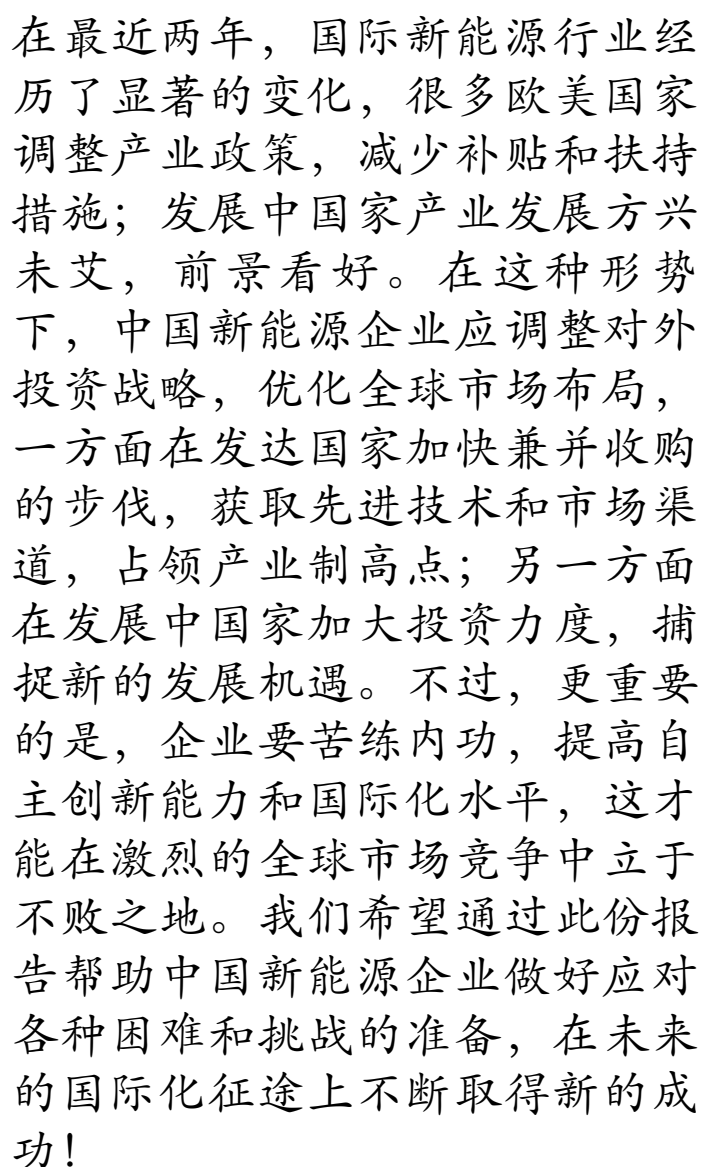 在最近两年，国际新能源行业经
历了显著的变化，很多欧美国家
调整产业政策，减少补贴和扶持
措施；发展中国家产业发展方兴
未艾，前景看好。在这种形势
下，中国新能源企业应调整对外
投资战略，优化全球市场布局，
一方面在发达国家加快兼并收购
的步伐，获取先进技术和市场渠
道，占领产业制高点；另一方面
在发展中国家加大投资力度，捕
捉新的发展机遇。不过，更重要
的是，企业要苦练内功，提高自
主创新能力和国际化水平，这才
能在激烈的全球市场竞争中立于
不败之地。我们希望通过此份报
告帮助中国新能源企业做好应对
各种困难和挑战的准备，在未来
的国际化征途上不断取得新的成
功！